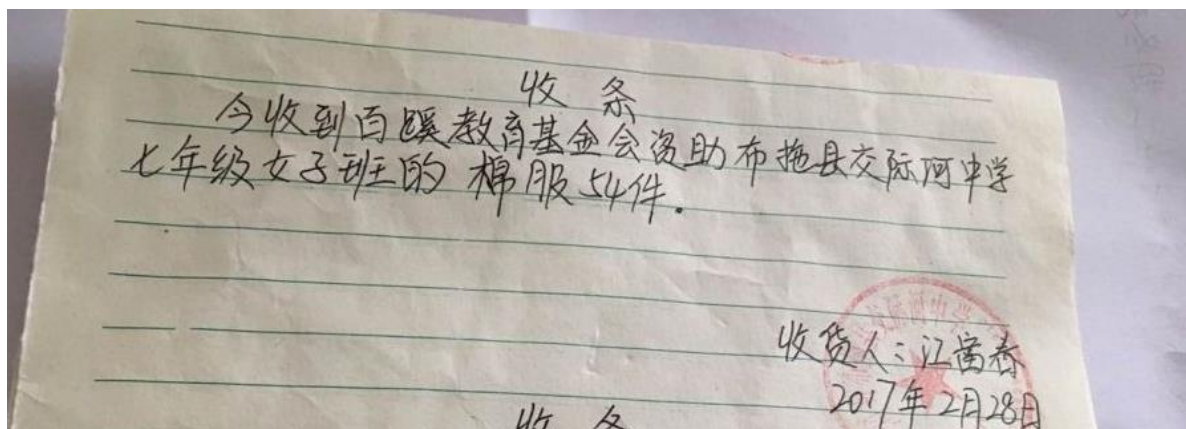 收条
今收到百蹊教育基金会资助布拖县交际河中学
七年级女子班的棉服54件.
收货人:江富春
2017年2月28日
收条